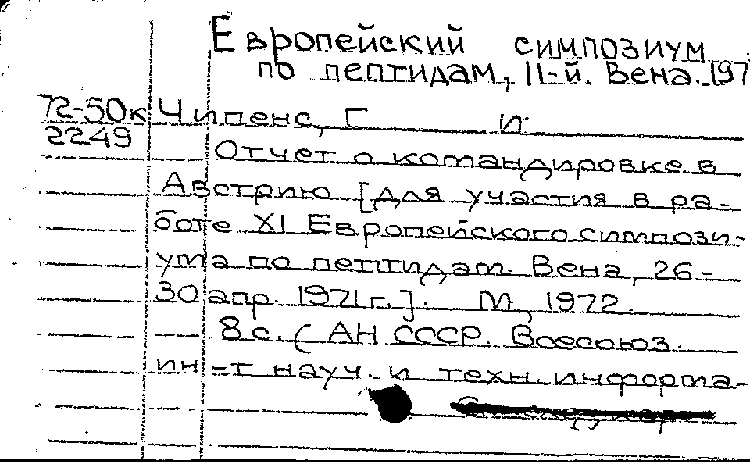 Европейский симпозиум
по пептидам, 11-й. Вена. 197
72-50к Чипенс, Г. И.
2249
Отчет о командировке в
Австрию [для участия в ра-
боте XI Европейского симпози-
ума по пептидам. Вена, 26-
30 апр. 1971г.]. М., 1972.
8 с. (АН СССР. Всесоюз.
ин-т науч. и техн. информа-